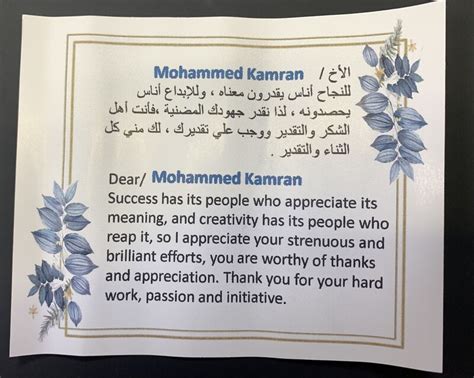 الأخ / Mohammed Kamran
للنجاح أناس يقدرون معناه ، وللإبداع أناس
يحصدونه ، لذا نقدر جهودك المضنية ،فأنت أهل
الشكر والتقدير ووجب علي تقديرك ، لك مني كل
الثناء والتقدير .
Dear/ Mohammed Kamran
Success has its people who appreciate its
meaning, and creativity has its people who
reap it, so I appreciate your strenuous and
brilliant efforts, you are worthy of thanks
and appreciation. Thank you for your hard
work, passion and initiative.